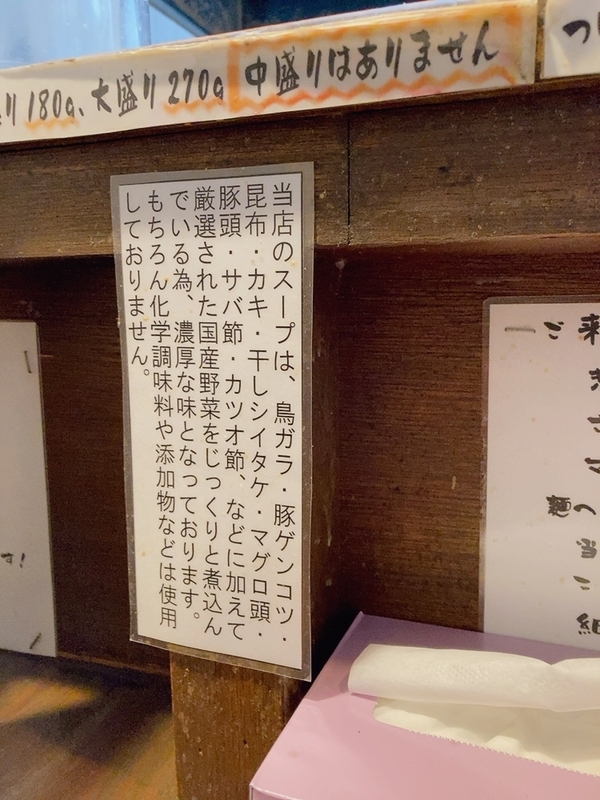 り180g、大盛り270g 中盛りはありません
つ
当店のスープは、鳥ガラ・豚ゲンコツ・
昆布・カキ・干しシイタケ・マグロ頭・
豚頭・サバ節・カツオ節、などに加えて
厳選された国産野菜をじっくりと煮込ん
でいる為、濃厚な味となっております。
もちろん化学調味料や添加物などは使用
しておりません。
ご
麺へ
す!